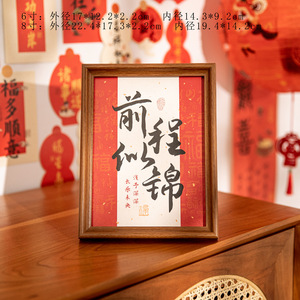 6寸：外径17*12.2*2.2cm，内径14.3*9.2cm
8寸：外径22.4*17.3*2.2cm，内径19.4*14.2
福多順意
前程
似锦